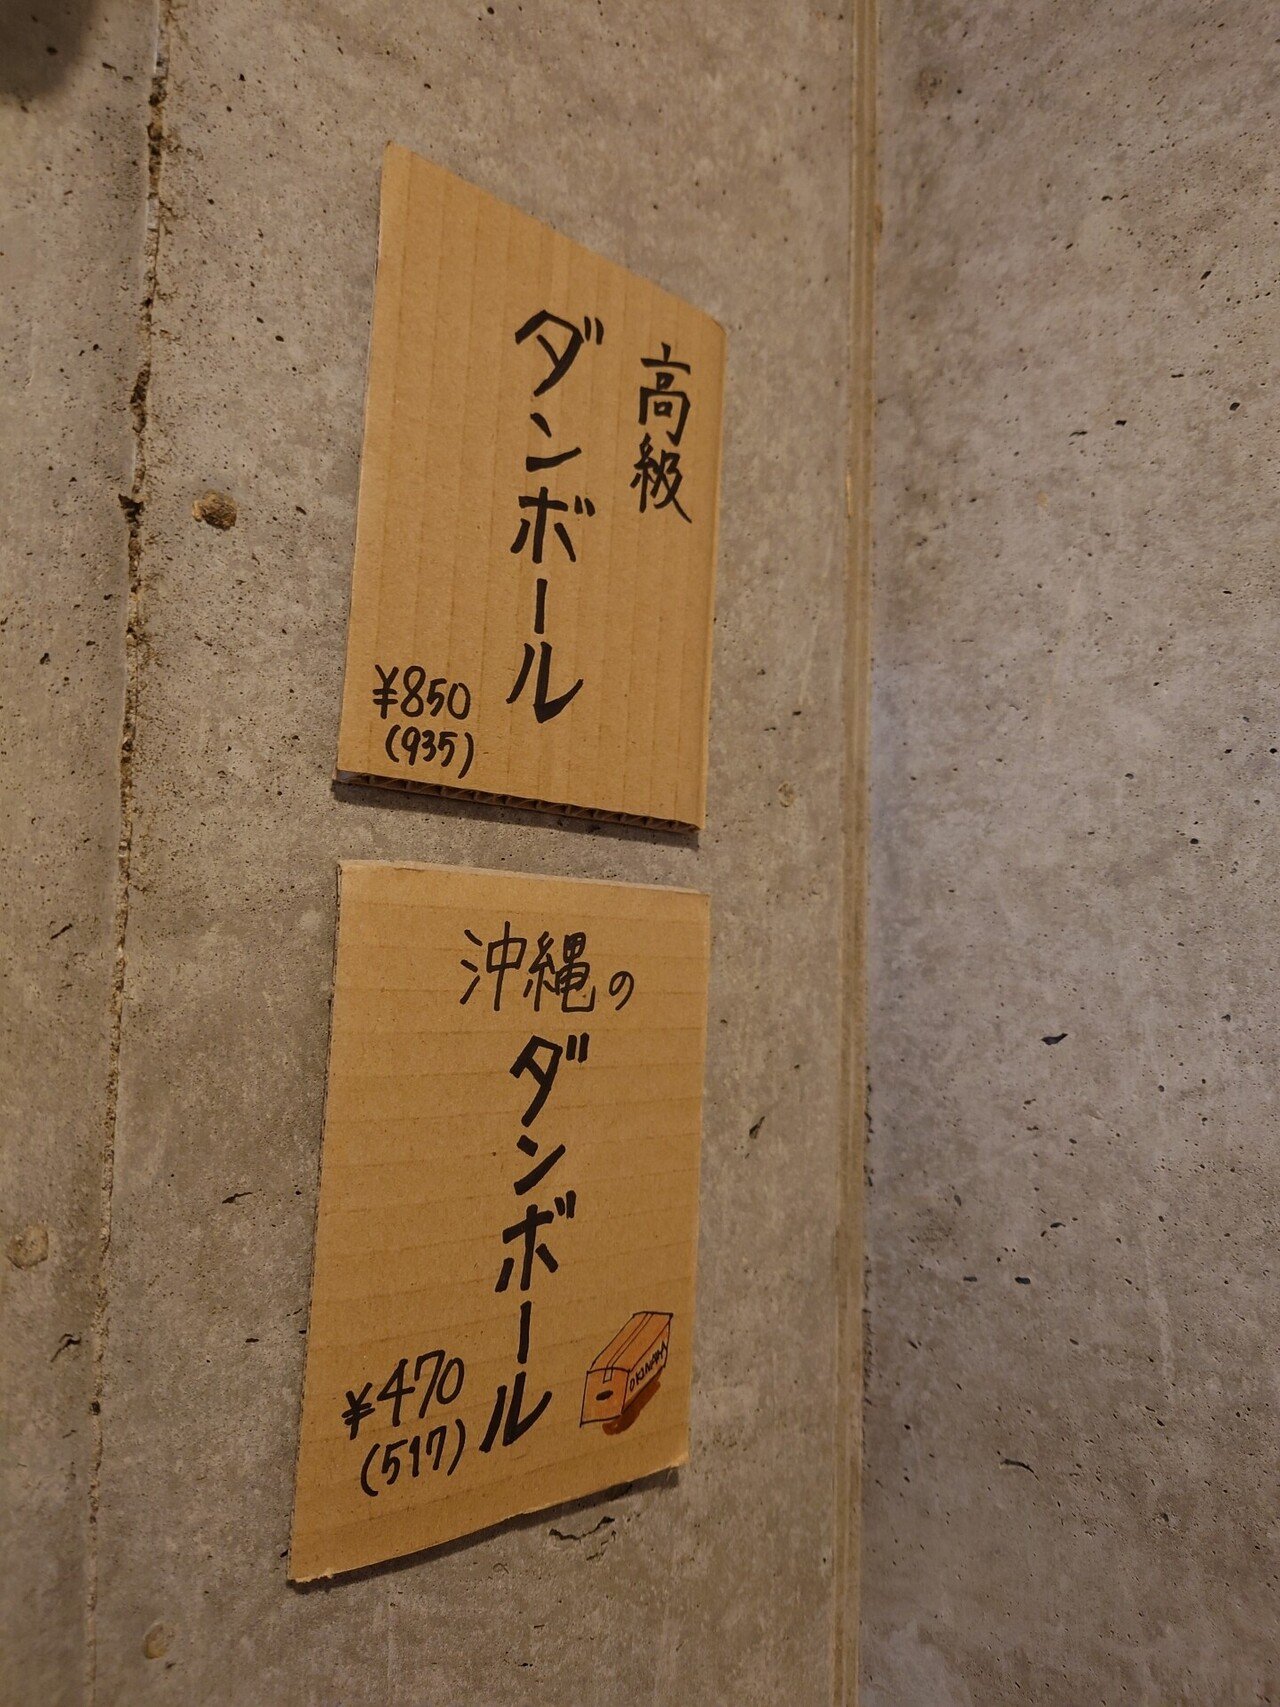 高級
ダンボール
¥850
(935)
沖縄の
ダンボール
¥470
(517)
OKINAWA